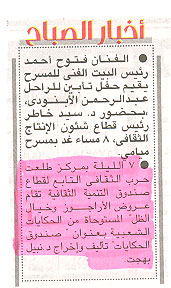 أخبار الصباح
● الفنان فتوح أحمد
رئيس البيت الفنى للمسرح
يقيم حفل تأبين للراحل
عبدالرحمن الأبنودى،
بحضور د. سيد خاطر
رئيس قطاع شئون الإنتاج
الثقافى، ٨ مساء غد بمسرح
ميامى.
● ٧ الليلة بمركز طلعت
حرب الثقافى التابع لقطاع
صندوق التنمية الثقافية تقام
عروض الأراجوز وخيال
الظل" المستوحاة من الحكايات
الشعبية بعنوان "صندوق
الحكايات" تأليف وإخراج د. نبيل
بهجت